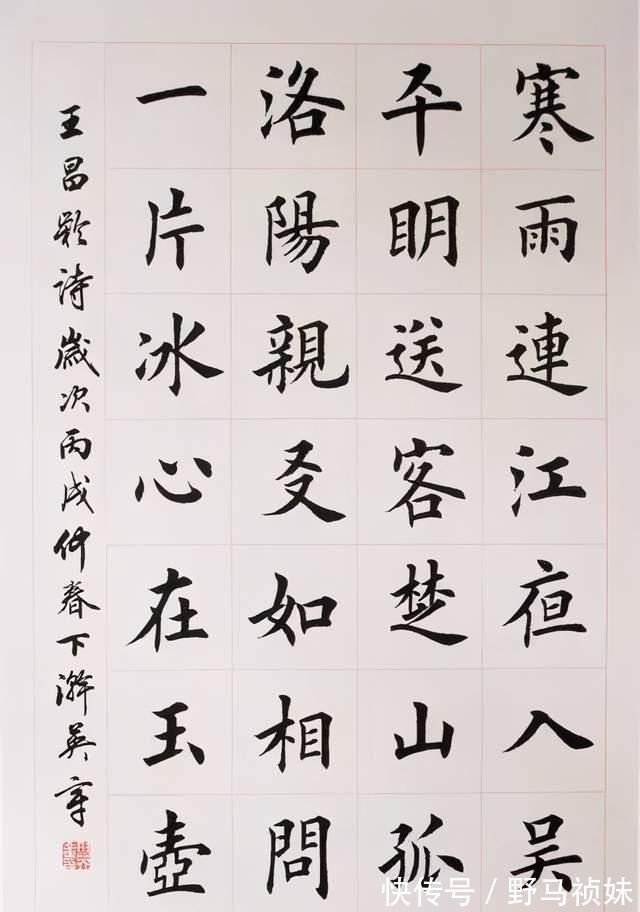 寒雨連江夜入吳
平明送客楚山孤
洛陽親友如相問
一片冰心在玉壺
王昌齡詩歲次丙戌仲春下澣英章
快传号 / 野马祯妹